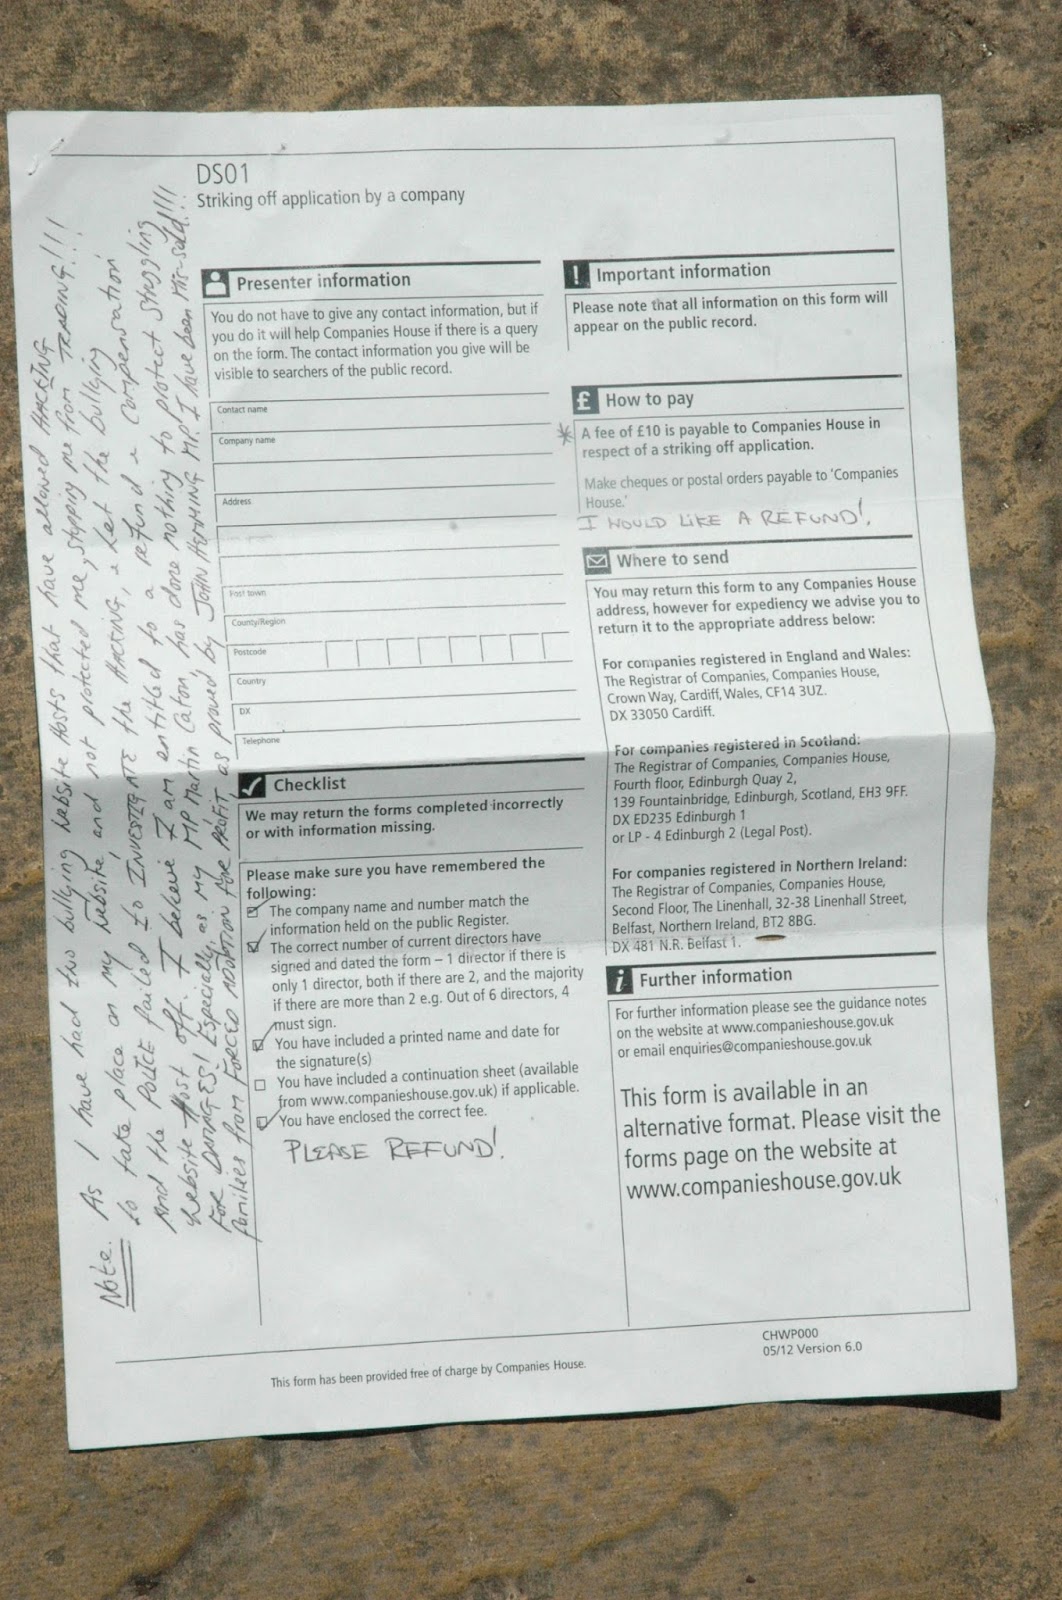 DS01
Striking off application by a company
Presenter information
You do not have to give any contact information, but if
you do it will help Companies House if there is a query
on the form. The contact information you give will be
visible to searchers of the public record.
Contact name
Company name
Address
Post town
County/Region
Postcode
Country
DX
Telephone
Checklist
We may return the forms completed incorrectly
or with information missing.
Please make sure you have remembered the
following:
The company name and number match the
information held on the public Register.
The correct number of current directors have
signed and dated the form – 1 director if there is
only 1 director, both if there are 2, and the majority
if there are more than 2 e.g. Out of 6 directors, 4
must sign.
You have included a printed name and date for
the signature(s)
You have included a continuation sheet (available
from www.companieshouse.gov.uk) if applicable.
You have enclosed the correct fee.
PLEASE REFUND!
Important information
Please note that all information on this form will
appear on the public record.
£ How to pay
* A fee of £10 is payable to Companies House in
respect of a striking off application.
Make cheques or postal orders payable to 'Companies
House.'
I WOULD LIKE A REFUND!
Where to send
You may return this form to any Companies House
address, however for expediency we advise you to
return it to the appropriate address below:
For companies registered in England and Wales:
The Registrar of Companies, Companies House,
Crown Way, Cardiff, Wales, CF14 3UZ.
DX 33050 Cardiff.
For companies registered in Scotland:
The Registrar of Companies, Companies House,
Fourth floor, Edinburgh Quay 2,
139 Fountainbridge, Edinburgh, Scotland, EH3 9FF.
DX ED235 Edinburgh 1
or LP - 4 Edinburgh 2 (Legal Post).
For companies registered in Northern Ireland:
The Registrar of Companies, Companies House,
Second Floor, The Linenhall, 32-38 Linenhall Street,
Belfast, Northern Ireland, BT2 8BG.
DX 481 N.R. Belfast 1.
Further information
For further information please see the guidance notes
on the website at www.companieshouse.gov.uk
or email enquiries@companieshouse.gov.uk
This form is available in an
alternative format. Please visit the
forms page on the website at
www.companieshouse.gov.uk
Note. As I have had two bullying website Hosts that have allowed HACKING
to take place on my website, and not protected me, stopping me from TRADING!!!
And the POLICE failed to INVESTIGATE the HACKING, & Let the bullying
website Host off. I believe I am entitled to a refund & Compensation
FOR DAMAGES! Especially, as my MP Martin Caton, has done nothing to protect struggling
families from FORCED ADOPTION FOR PROFIT, as proved by JOHN HEMMING MP. I have been Mis-sold!!!
This form has been provided free of charge by Companies House.
CHWP000
05/12 Version 6.0